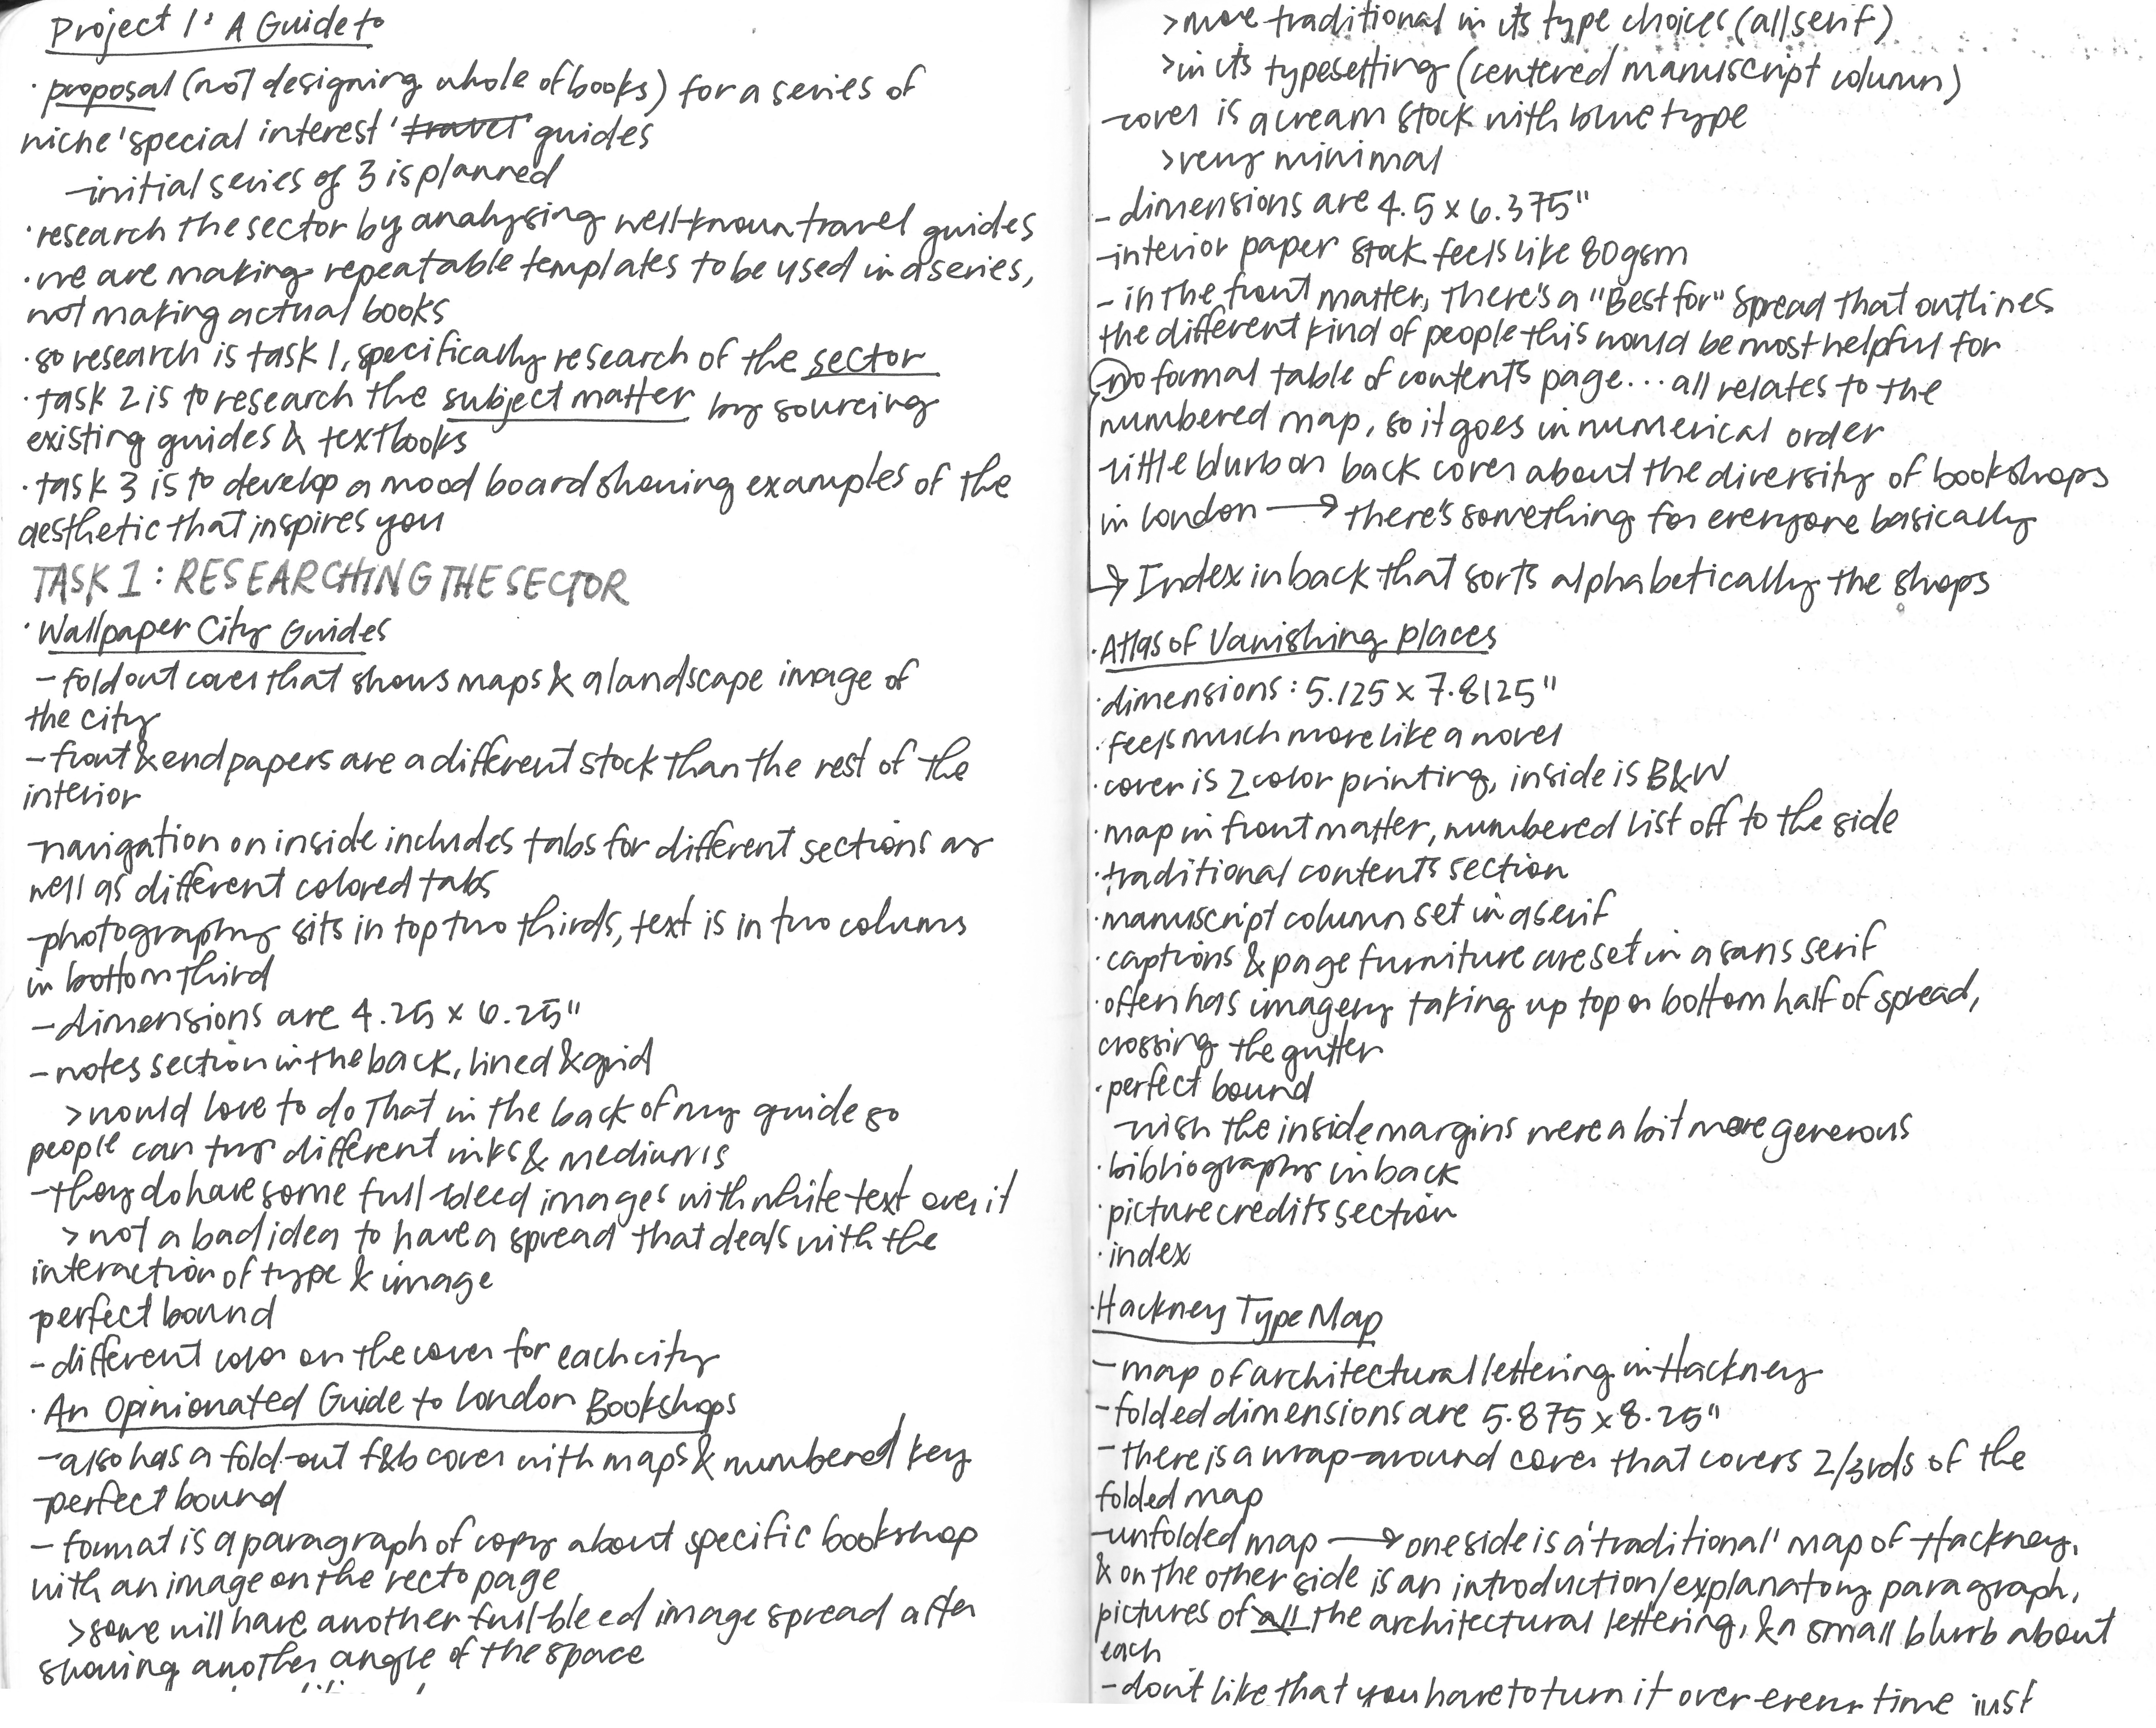 Project 1: A Guide to
· proposal (not designing whole of books) for a series of
niche 'special interest' travel' guides
-initial series of 3 is planned
· research the sector by analysing well-known travel guides
· we are making repeatable templates to be used in a series,
not making actual books
· so research is task 1, specifically research of the sector
· task 2 is to research the subject matter by sourcing
existing guides & textbooks
· task 3 is to develop a mood board showing examples of the
aesthetic that inspires you
TASK 1: RESEARCHING THE SECTOR
· Wallpaper City Guides
- fold out cover that shows maps & a landscape image of
the city
- front & endpapers are a different stock than the rest of the
interior
-navigation on inside includes tabs for different sections as
well as different colored tabs
-photography sits in top two thirds, text is in two colums
in bottom third
- dimensions are 4.25 x 6.25"
- notes section in the back, lined & grid
> would love to do that in the back of my guide so
people can try different inks & mediums
-they do have some full bleed images with white text over it
> not a bad idea to have a spread that deals with the
interaction of type & image
-perfect bound
- different color on the cover for each city
· An Opinionated Guide to London Bookshops
-also has a fold-out f&b cover with maps & numbered key
-perfect bound
- format is a paragraph of copy about specific bookshop
with an image on the recto page
>some will have another full-bleed image spread after
showing another angle of the space
>more traditional in its type choices (all serif)
>in its typesetting (centered manuscript column)
-cover is a cream stock with blue type
>very minimal
- dimensions are 4.5 x 6.375"
-interior paper stock feels like 80gsm
- in the front matter, there's a "Best for" spread that outlines
the different kind of people this would be most helpful for
-no formal table of contents page... all relates to the
numbered map, so it goes in numerical order
-little blurb on back cover about the diversity of bookshops
in london → there's something for everyone basically
→ Index in back that sorts alphabetically the shops
· Atlas of Vanishing Places
· dimensions: 5.125 x 7.8125"
· feels much more like a novel
· cover is 2 color printing, inside is B&W
· map in front matter, numbered list off to the side
· traditional contents section
· manuscript column set in a serif
· captions & page furniture are set in a sans serif
· often has imagery taking up top or bottom half of spread,
crossing the gutter
· perfect bound
-wish the inside margins were a bit more generous
· bibliography in back
· picture credits section
· index
· Hackney Type Map
- map of architectural lettering in Hackney
- folded dimensions are 5.875 x 8.25"
- there is a wrap-around cover that covers 2/3rds of the
folded map
-unfolded map → one side is a 'traditional' map of Hackney,
& on the other side is an introduction/explanatory paragraph,
pictures of all the architectural lettering, & a small blurb about
each
- don't like that you have to turn it over every time just